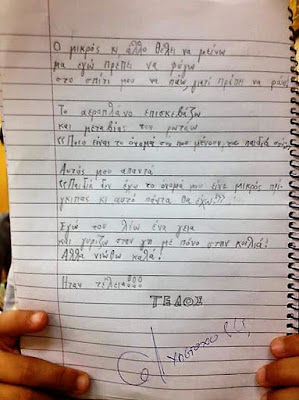 Ο μικρός κι άλλο θέλει να μείνω
μα εγώ πρέπει να φύγω
στο σπίτι μου να πάω γιατί πρέπει να φάω.
Το αεροπλάνο επισκεβάζω
και μεταβίας τον ρωτάω
«Ποιο είναι το όνομά σου που μένουν
Αυτός μου απαντά
«Παιδιά δεν έχω το όνομά μου είναι μικρός πρί-
γκιπας κι αυτό πάντα θα έχω!!!»
Εγώ του λέω ένα γεια
και γυρίζω στην γη με πόνο στην κοιλιά!
Αλλά νιώθω καλά!
Ήταν τέλεια!!!
ΤΕΛΟΣ